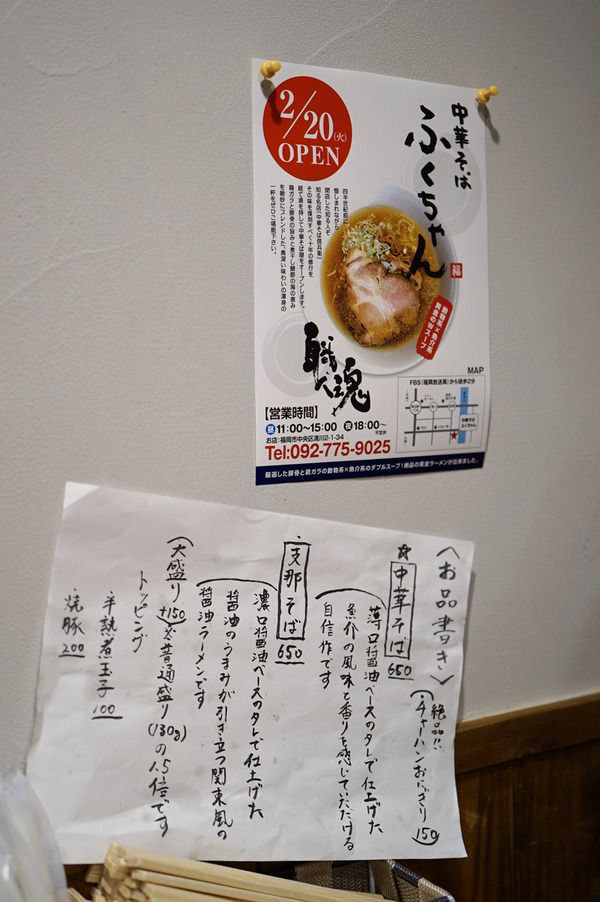 2/20(火)
OPEN
中華そば
ふくちゃん
福
四半世紀前に
惜しまれながら
閉店した知る人ぞ
知る名店「中華そば信兵衛」
その味を復刻すべく十年の修行を
経て満を持して中華そば屋をオープンします。
鶏ガラと豚骨の旨みと煮干し鰹節の海の恵み
を絶妙にブレンドした、奥深い味わいの渾身の
一杯をぜひご堪能下さい。
動物系×魚介系
黄金のWスープ
職人魂
MAP
FBS(福岡放送局)から徒歩2分
【営業時間】
昼11:00〜15:00 夜18:00〜
不定休
お店:福岡市中央区清川2-1-34
Tel:092-775-9025
厳選した豚骨と鶏ガラの動物系×魚介系のダブルスープ!絶品の黄金ラーメンが出来ました。
〈お品書き〉
絶品!!
・チャーハンおにぎり 150
☆中華そば 650
薄口醤油ベースのタレで仕上げた
魚介の風味と香りを感じていただける
自信作です
・支那そば 650
濃口醤油ベースのタレで仕上げた
醤油のうまみが引き立つ関東風の
醤油ラーメンです
(大盛り +150 ※普通盛り(130g)の1.5倍です
トッピング
・半熟煮玉子 100
・焼豚 200